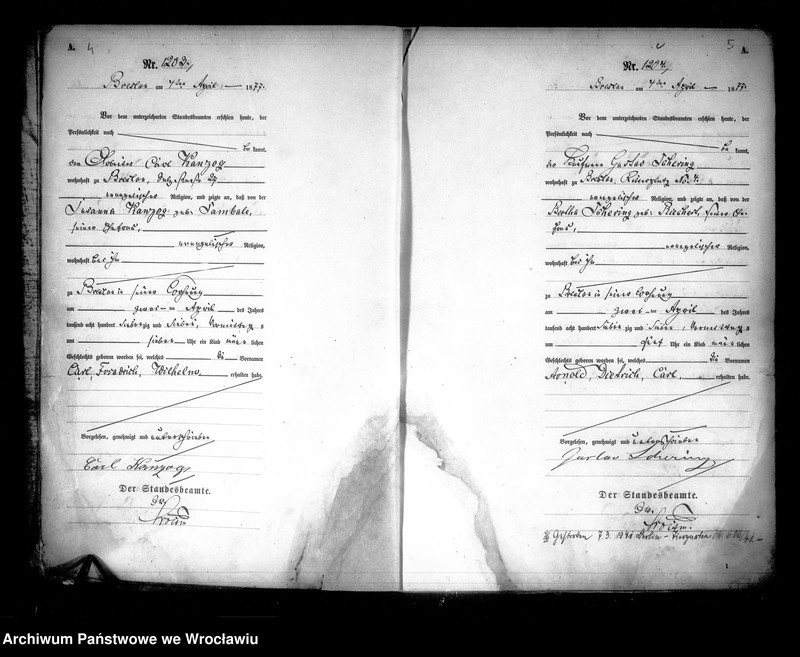 A. 4
Nr. 1203.
Breslau am 7ten April 1877.
Vor dem unterzeichneten Standesbeamten erschien heute, der
Persönlichkeit nach
be kannt,
Carl Kanzog
wohnhaft zu Breslau,
evangelischer Religion, und zeigte an, daß von der
Susanna Kanzog geb.
seiner Ehefrau,
evangelischer Religion,
wohnhaft bei ihm
zu Breslau in seiner Wohnung
am zwei-en April des Jahres
tausend acht hundert siebenzig und sieben, Vormittags
um sieben Uhr ein Kind männlichen
Geschlechts geboren worden sei, welches die Vornamen
Carl, Friedrich, Wilhelm erhalten habe.
Vorgelesen, genehmigt und unterschrieben
Carl Kanzog
Der Standesbeamte.
5 A.
Nr. 1204.
Breslau am 7ten April 1877.
Vor dem unterzeichneten Standesbeamten erschien heute, der
Persönlichkeit nach
be kannt,
der Kaufmann Gustav
wohnhaft zu Breslau,
evangelischer Religion, und zeigte an, daß von der
Bertha geb. seiner Ehe-
frau,
evangelischer Religion,
wohnhaft bei ihm
zu Breslau in seiner Wohnung
am zwei-en April des Jahres
tausend acht hundert siebenzig und sieben, Vormittags
um Uhr ein Kind männlichen
Geschlechts geboren worden sei, welches die Vornamen
Arnold, Dietrich, Carl, erhalten habe.
Vorgelesen, genehmigt und unterschrieben
Gustav
Der Standesbeamte.
Gestorben 7.3. 1941 Berlin-Tiergarten
1
Archiwum Państwowe we Wrocławiu